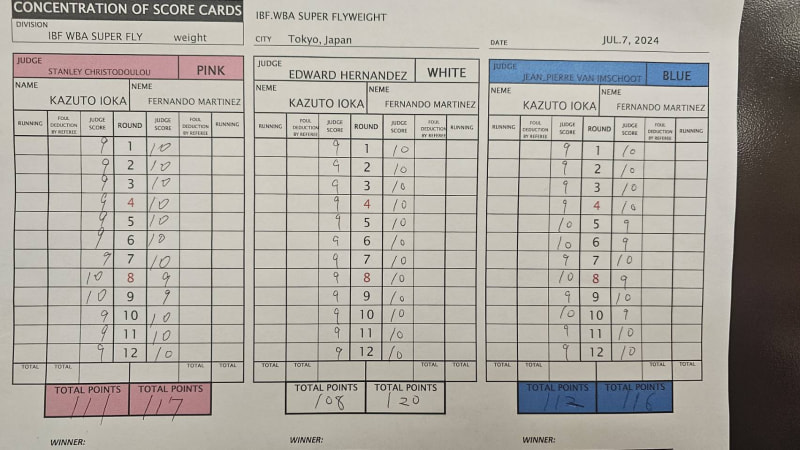 CONCENTRATION OF SCORE CARDS
IBF.WBA SUPER FLYWEIGHT
DIVISION
IBF WBA SUPER FLY weight
CITY Tokyo, Japan
DATE JUL.7, 2024
JUDGE
STANLEY CHRISTODOULOU PINK
NAME NEME
KAZUTO IOKA FERNANDO MARTINEZ
RUNNING FOUL DEDUCTION BY REFEREE JUDGE SCORE ROUND JUDGE SCORE FOUL DEDUCTION BY REFEREE RUNNING
9 1 10
9 2 10
9 3 10
9 4 10
9 5 10
9 6 10
9 7 10
10 8 9
10 9 9
9 10 10
9 11 10
9 12 10
TOTAL TOTAL TOTAL TOTAL
TOTAL POINTS TOTAL POINTS
111 117
WINNER:
JUDGE
EDWARD HERNANDEZ WHITE
NEME NEME
KAZUTO IOKA FERNANDO MARTINEZ
RUNNING FOUL DEDUCTION BY REFEREE JUDGE SCORE ROUND JUDGE SCORE FOUL DEDUCTION BY REFEREE RUNNING
9 1 10
9 2 10
9 3 10
9 4 10
9 5 10
9 6 10
9 7 10
9 8 10
9 9 10
9 10 10
9 11 10
9 12 10
TOTAL TOTAL TOTAL TOTAL
TOTAL POINTS TOTAL POINTS
108 120
WINNER:
JUDGE
JEAN_PIERRE VAN IMSCHOOT BLUE
NEME NEME
KAZUTO IOKA FERNANDO MARTINEZ
RUNNING FOUL DEDUCTION BY REFEREE JUDGE SCORE ROUND JUDGE SCORE FOUL DEDUCTION BY REFEREE RUNNING
9 1 10
9 2 10
9 3 10
9 4 10
10 5 9
10 6 9
9 7 10
10 8 9
9 9 10
10 10 9
9 11 10
9 12 10
TOTAL TOTAL TOTAL TOTAL
TOTAL POINTS TOTAL POINTS
112 116
WINNER: